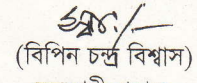 (বিপিন চন্দ্র বিশ্বাস)